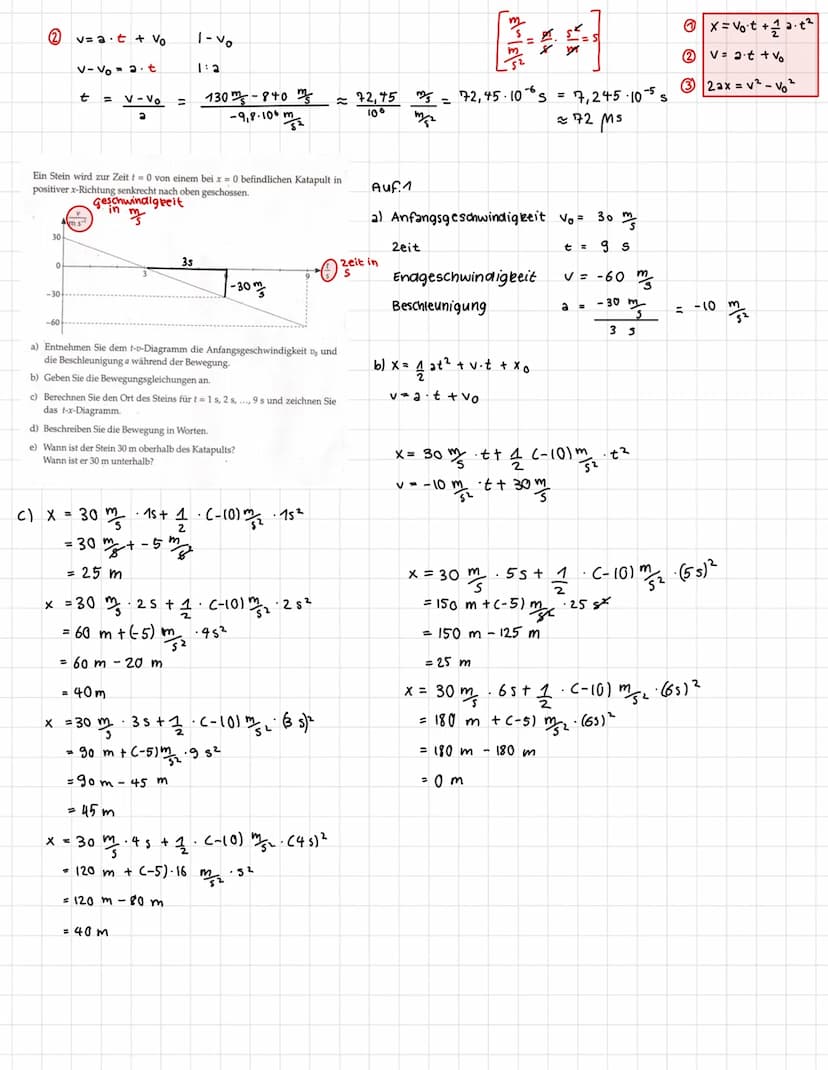 ② v = a · t + v₀ | - v₀
v - v₀ = a · t | : a
t = (v - v₀)/a = (130 m/s - 840 m/s)/(-9,8 · 10⁶ m/s²) ≈ 72,45/10⁶ (m/s)/(m/s²) = 72,45 · 10⁻⁶ s = 7,245 · 10⁻⁵ s
≈ 72 μs
[(m/s)/(m/s²) = m/s · s²/m = s]
① x = v₀ · t + 1/2 a · t²
② v = a · t + v₀
③ 2ax = v² - v₀²
Ein Stein wird zur Zeit t = 0 von einem bei x = 0 befindlichen Katapult in
positiver x-Richtung senkrecht nach oben geschossen.
geschwindigkeit
in m/s
v/m s⁻¹
30
0
-30
-60
3
3s
-30 m/s
9
t/s
zeit in
s
a) Entnehmen Sie dem t-v-Diagramm die Anfangsgeschwindigkeit v₀ und
die Beschleunigung a während der Bewegung.
b) Geben Sie die Bewegungsgleichungen an.
c) Berechnen Sie den Ort des Steins für t = 1 s, 2 s, ..., 9 s und zeichnen Sie
das t-x-Diagramm.
d) Beschreiben Sie die Bewegung in Worten.
e) Wann ist der Stein 30 m oberhalb des Katapults?
Wann ist er 30 m unterhalb?
Auf.1
a) Anfangsgeschwindigkeit v₀ = 30 m/s
zeit t = 9 s
Endgeschwindigkeit v = -60 m/s
Beschleunigung a = (-30 m/s)/(3 s) = -10 m/s²
b) x = 1/2 at² + v·t + x₀
v = a · t + v₀
x = 30 m/s · t + 1/2 (-10) m/s² · t²
v = -10 m/s² · t + 30 m/s
c) x = 30 m/s · 1s + 1/2 · (-10) m/s² · 1s²
= 30 m/s + -5 m/s²
= 25 m
x = 30 m/s · 2s + 1/2 · (-10) m/s² · 2s²
= 60 m + (-5) m/s² · 4s²
= 60 m - 20 m
= 40m
x = 30 m/s · 3s + 1/2 · (-10) m/s² · (3 s)²
= 90 m + (-5) m/s² · 9 s²
= 90 m - 45 m
= 45 m
x = 30 m/s · 4 s + 1/2 · (-10) m/s² · (4 s)²
= 120 m + (-5) · 16 m/s² · s²
= 120 m - 80 m
= 40 m
x = 30 m/s · 5s + 1/2 · (-10) m/s² · (5s)²
= 150 m + (-5) m/s² · 25 s²
= 150 m - 125 m
= 25 m
x = 30 m/s · 6s + 1/2 · (-10) m/s² · (6s)²
= 180 m + (-5) m/s² · (6s)²
= 180 m - 180 m
= 0 m